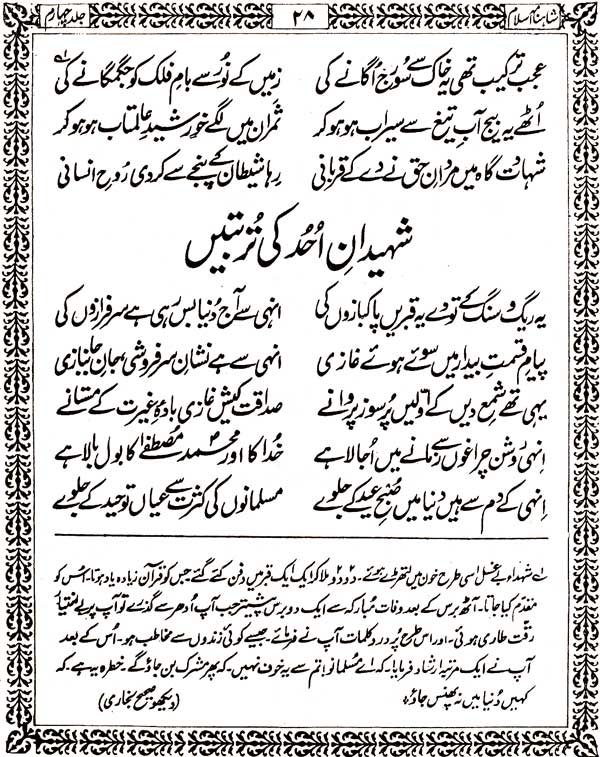 شاہنامۂ اسلام ۲۸ جلد چہارم
عجب ترکیب تھی یہ خاک سے سورج اُگانے کی زمیں کے نُور سے بامِ فلک کو جگمگانے کی ؎۱
اُٹھے یہ بیج آبِ تیغ سے سیراب ہو ہو کر ثمر ان میں لگے خورشیدِ عالمتاب ہو ہو کر
شہادت گاہ میں مردانِ حق نے دے کے قربانی رہا شیطان کے پنجے سے کر دی رُوحِ انسانی
شہیدانِ اُحُد کی تُربتیں
یہ ریگ و سنگ کے تودے یہ قبریں پاکبازوں کی انہی سے آج دُنیا بس رہی ہے سرفرازوں کی
پیامِ قسمتِ بیدار ہیں سوئے ہوئے غازی انہی سے ہے نشانِ سرفروشی بجانِ جانبازی
یہی تھے شمعِ دیں کے اوّلیں پُرسوز پروانے صداقت کیش غازی بادۂ غیرت کے مستانے
اِنہی روشن چراغوں سے زمانے میں اُجالا ہے خُدا کا اور محمد مصطفےٰؐ کا بول بالا ہے
اِنہی کے دم سے ہیں دنیا میں صُبحِ عید کے جلوے مسلمانوں کی کثرت سے عیاں توحید کے جلوے
؎۱ شہداء بے غسل اسی طرح خون میں لتھڑے ہوئے۔ دو دو ملا کر ایک ایک قبر میں دفن کئے گئے جس کو قرآن زیادہ یاد ہوتا۔ اُس کو
مقدم کیا جاتا۔ آٹھ برس کے بعد وفات مُبارک سے ایک دو برس پیشتر جب آپ اُدھر سے گذرے تو آپ پر بے اختیار
رقّت طاری ہوئی۔ اور اس طرح پُر درد کلمات آپ نے فرمائے۔ جیسے کوئی زندوں سے مخاطب ہو۔ اُس کے بعد
آپ نے ایک مرتبہ ارشاد فرمایا۔ کہ اے مُسلمانو! تم سے یہ خوف نہیں کہ پھر مشرک بن جاؤ گے۔ خطرہ یہ ہے کہ
کہیں دُنیا میں نہ پھنس جاؤ۔ (دیکھو صحیح بخاری)